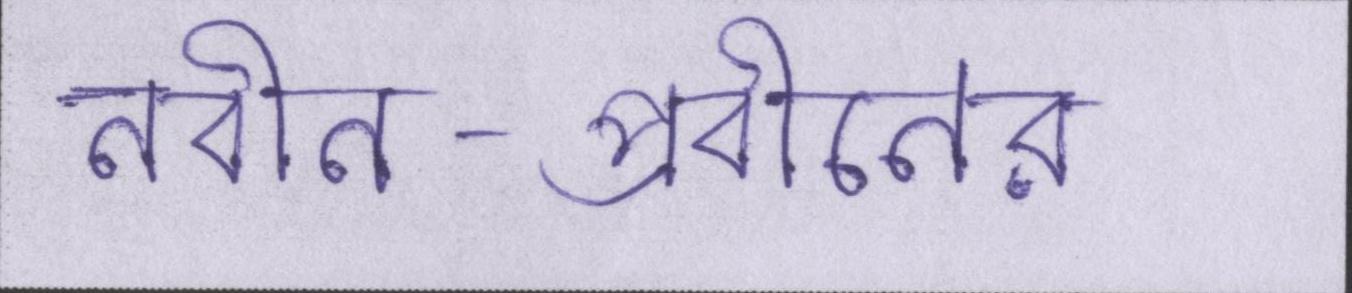 নবীন - প্রবীনের